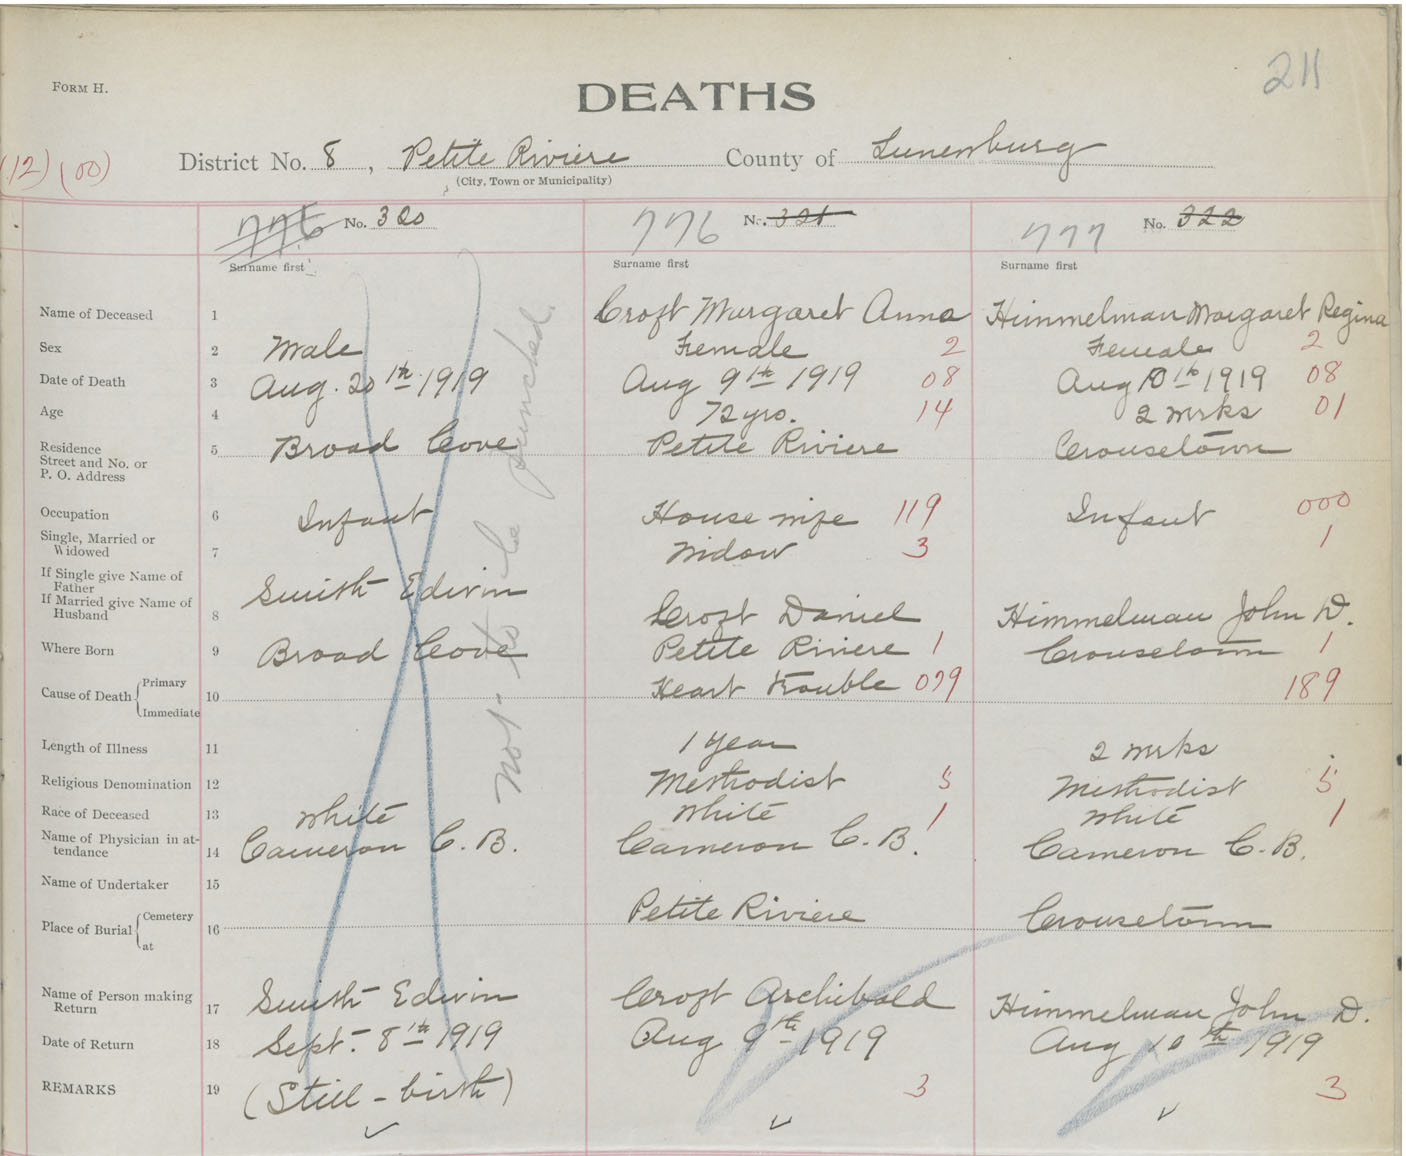 211
FORM H.
DEATHS
(12) (00)
District No. 8, Petite Riviere County of Lunenburg
(City, Town or Municipality)
776 No. 320 776 No. 321 777 No. 322
Surname first Surname first Surname first
Name of Deceased 1 Croft Margaret Anna Himmelman Margaret Regina
Sex 2 Male Female 2 Female 2
Date of Death 3 Aug. 20th 1919 Aug 9th 1919 08 Aug 10th 1919 08
Age 4 72 yrs. 14 2 weeks 01
Residence
Street and No. or
P. O. Address 5 Broad Cove Petite Riviere Crousetown
Occupation 6 Infant House wife 119 Infant 000
Single, Married or
Widowed 7 Widow 3 1
If Single give Name of
Father
If Married give Name of
Husband 8 Smith Edwin Croft Daniel Himmelman John D.
Where Born 9 Broad Cove Petite Riviere 1 Crousetown 1
Cause of Death Primary
Immediate 10 Heart trouble 079 189
Length of Illness 11 1 year 2 weeks
Religious Denomination 12 Methodist 5 Methodist 5
Race of Deceased 13 White White 1 White 1
Name of Physician in at-
tendance 14 Cameron C. B. Cameron C. B. Cameron C. B.
Name of Undertaker 15
Place of Burial Cemetery
at 16 Petite Riviere Crousetown
Name of Person making
Return 17 Smith Edwin Croft Archibald Himmelman John D.
Date of Return 18 Sept. 8th 1919 Aug 9th 1919 Aug 10th 1919
REMARKS 19 (Still-birth) 3 3
Not to be punched.